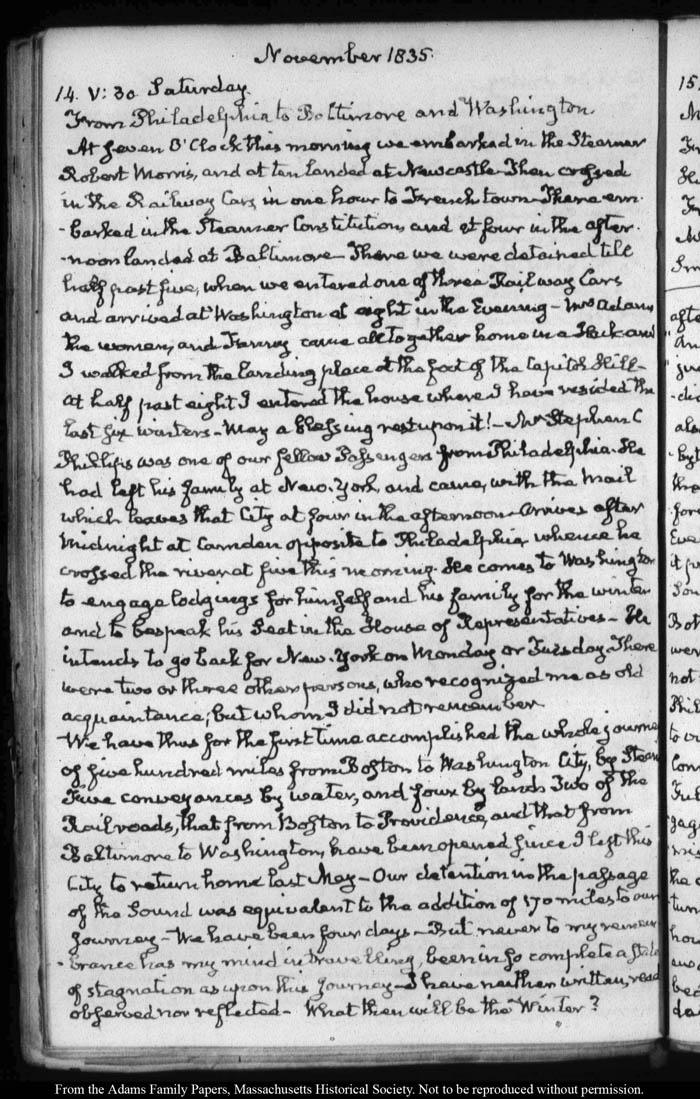 November 1835.
14. V: 30 Saturday.
From Philadelphia to Baltimore and Washington.
At seven O'Clock this morning we embarked in the Steamer
Robert Morris, and at ten landed at Newcastle. Then crossed
in the Railway Cars in one hour to French town. There em-
-barked in the Steamer Constitution, and at four in the after-
-noon landed at Baltimore. There we were detained till
half past five, when we entered one of three Railway Cars
and arrived at Washington at eight in the Evening - Mrs Adams
the women, and Fanny came all together home in a Hack and
I walked from the landing place at the foot of the Capitol Hill -
At half past eight I entered the house where I have resided the
last six winters - May a blessing rest upon it! - Mr Stephen C
Phillips was one of our fellow Passengers from Philadelphia. He
had left his family at New-York, and came, with the mail
which leaves that City at four in the afternoon - Arrives after
midnight at Camden opposite to Philadelphia, whence he
crossed the river at five this morning. He comes to Washington
to engage lodgings for himself and his family for the winter
and to bespeak his Seat in the House of Representatives - He
intends to go back for New-York on Monday or Tuesday. There
were two or three other persons, who recognized me as old
acquaintance, but whom I did not remember
We have thus for the first time accomplished the whole journey
of five hundred miles from Boston to Washington City, by Steam
Five conveyances by water, and four by land. Two of the
Railroads, that from Boston to Providence, and that from
Baltimore to Washington, have been opened since I left this
City to return home last May - Our detention in the passage
of the Sound was equivalent to the addition of 170 miles to our
journey - We have been four days - But never to my remem-
-brance has my mind in travelling, been in so complete a state
of stagnation as upon this journey - I have neither written, read
observed nor reflected - What then will be the Winter?
15.
From the Adams Family Papers, Massachusetts Historical Society. Not to be reproduced without permission.